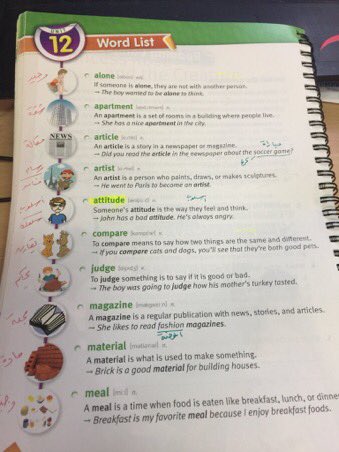 UNIT
12 Word List
وحيد
alone adv.
If someone is alone, they are not with another person.
→ The boy wanted to be alone to think.
شقة
apartment n.
An apartment is a set of rooms in a building where people live.
→ She has a nice apartment in the city.
مقالة
NEWS
article n.
An article is a story in a newspaper or magazine.
→ Did you read the article in the newspaper about the soccer game?
artist n.
An artist is a person who paints, draws, or makes sculptures.
→ He went to Paris to become an artist.
attitude n.
Someone's attitude is the way they feel and think.
→ John has a bad attitude. He's always angry.
compare v.
To compare means to say how two things are the same and different.
→ If you compare cats and dogs, you'll see that they're both good pets.
judge v.
To judge something is to say if it is good or bad.
→ The boy was going to judge how his mother's turkey tasted.
magazine n.
A magazine is a regular publication with news, stories, and articles.
→ She likes to read fashion magazines.
مادة
material n.
A material is what is used to make something.
→ Brick is a good material for building houses.
meal n.
A meal is a time when food is eaten like breakfast, lunch, or
→ Breakfast is my favorite meal because I enjoy breakfast foods.